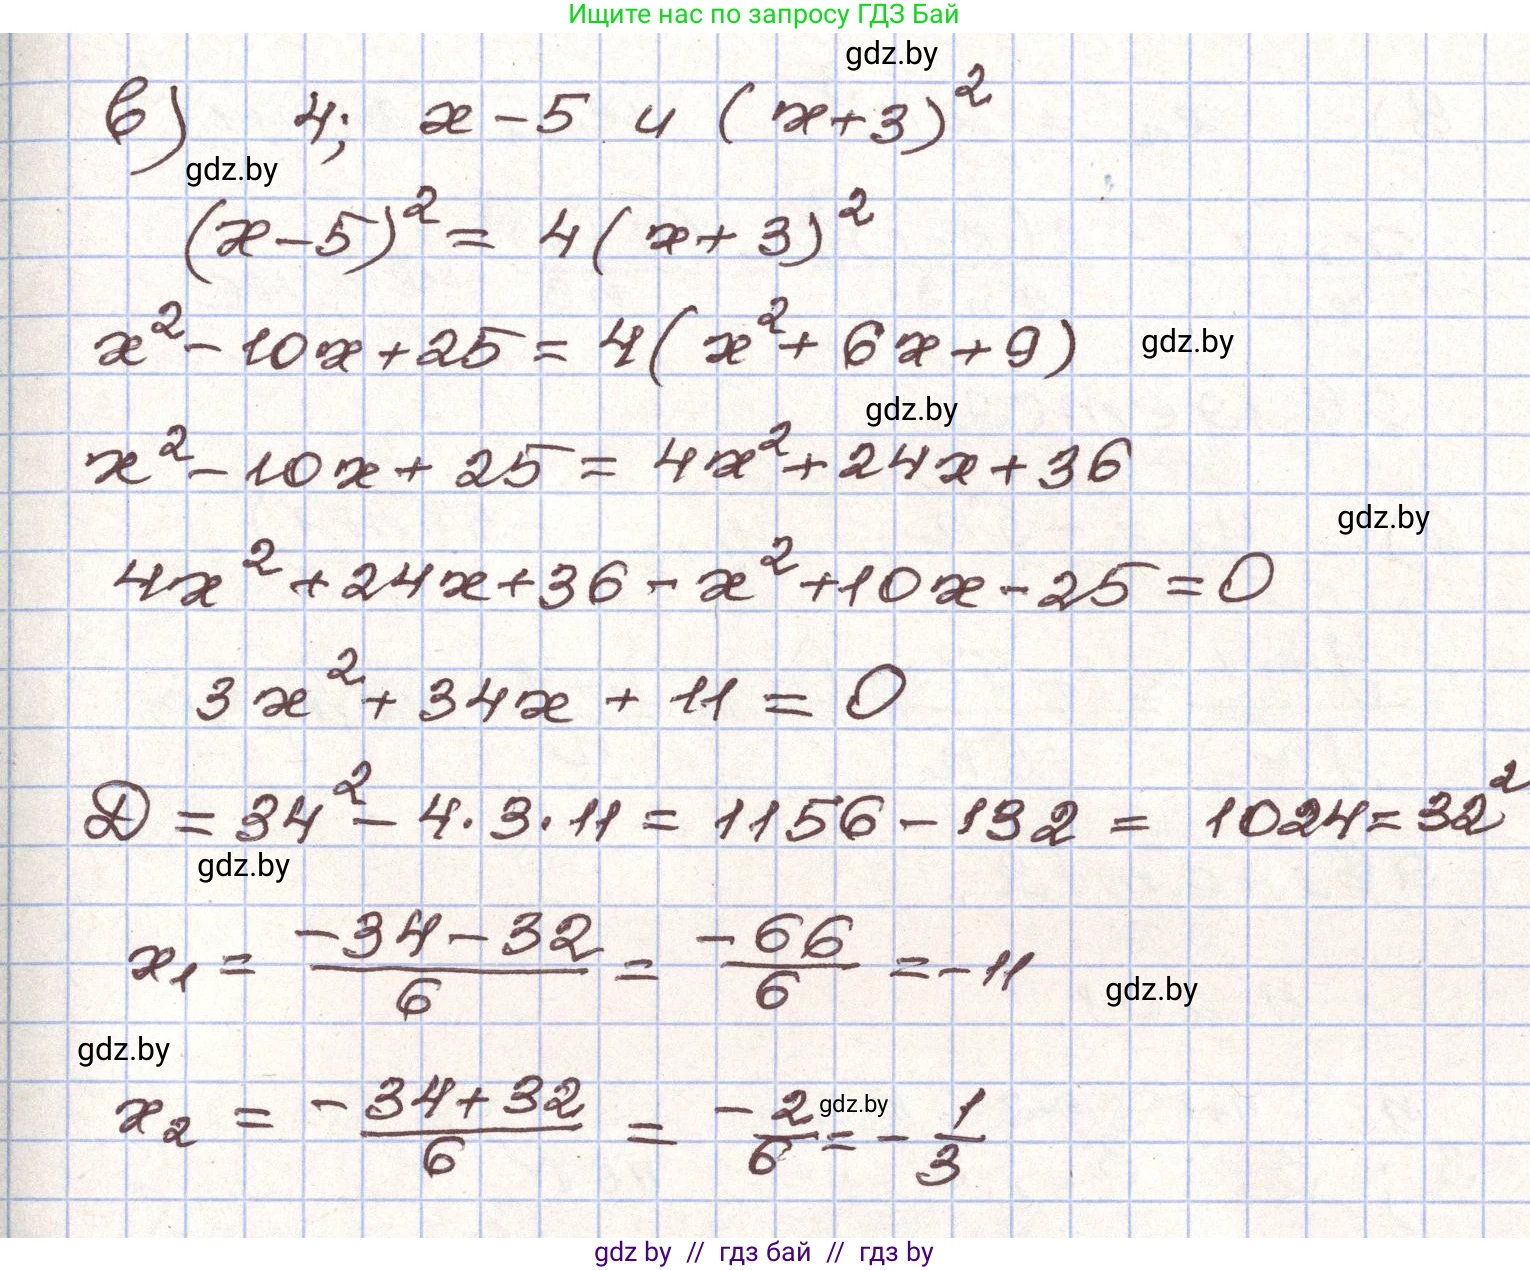 Ищите нас по запросу ГДЗ Бай
gdz.by
в) 4; x - 5 и (x + 3)²
gdz.by
(x - 5)² = 4(x + 3)²
x² - 10x + 25 = 4(x² + 6x + 9)
gdz.by
gdz.by
x² - 10x + 25 = 4x² + 24x + 36
gdz.by
4x² + 24x + 36 - x² + 10x - 25 = 0
3x² + 34x + 11 = 0
D = 34² - 4·3·11 = 1156 - 132 = 1024 = 32²
gdz.by
x₁ = (-34 - 32)/6 = -66/6 = -11
gdz.by
gdz.by
x₂ = (-34 + 32)/6 = -2/6 = -1/3
gdz.by
gdz by // гдз бай // гдз by